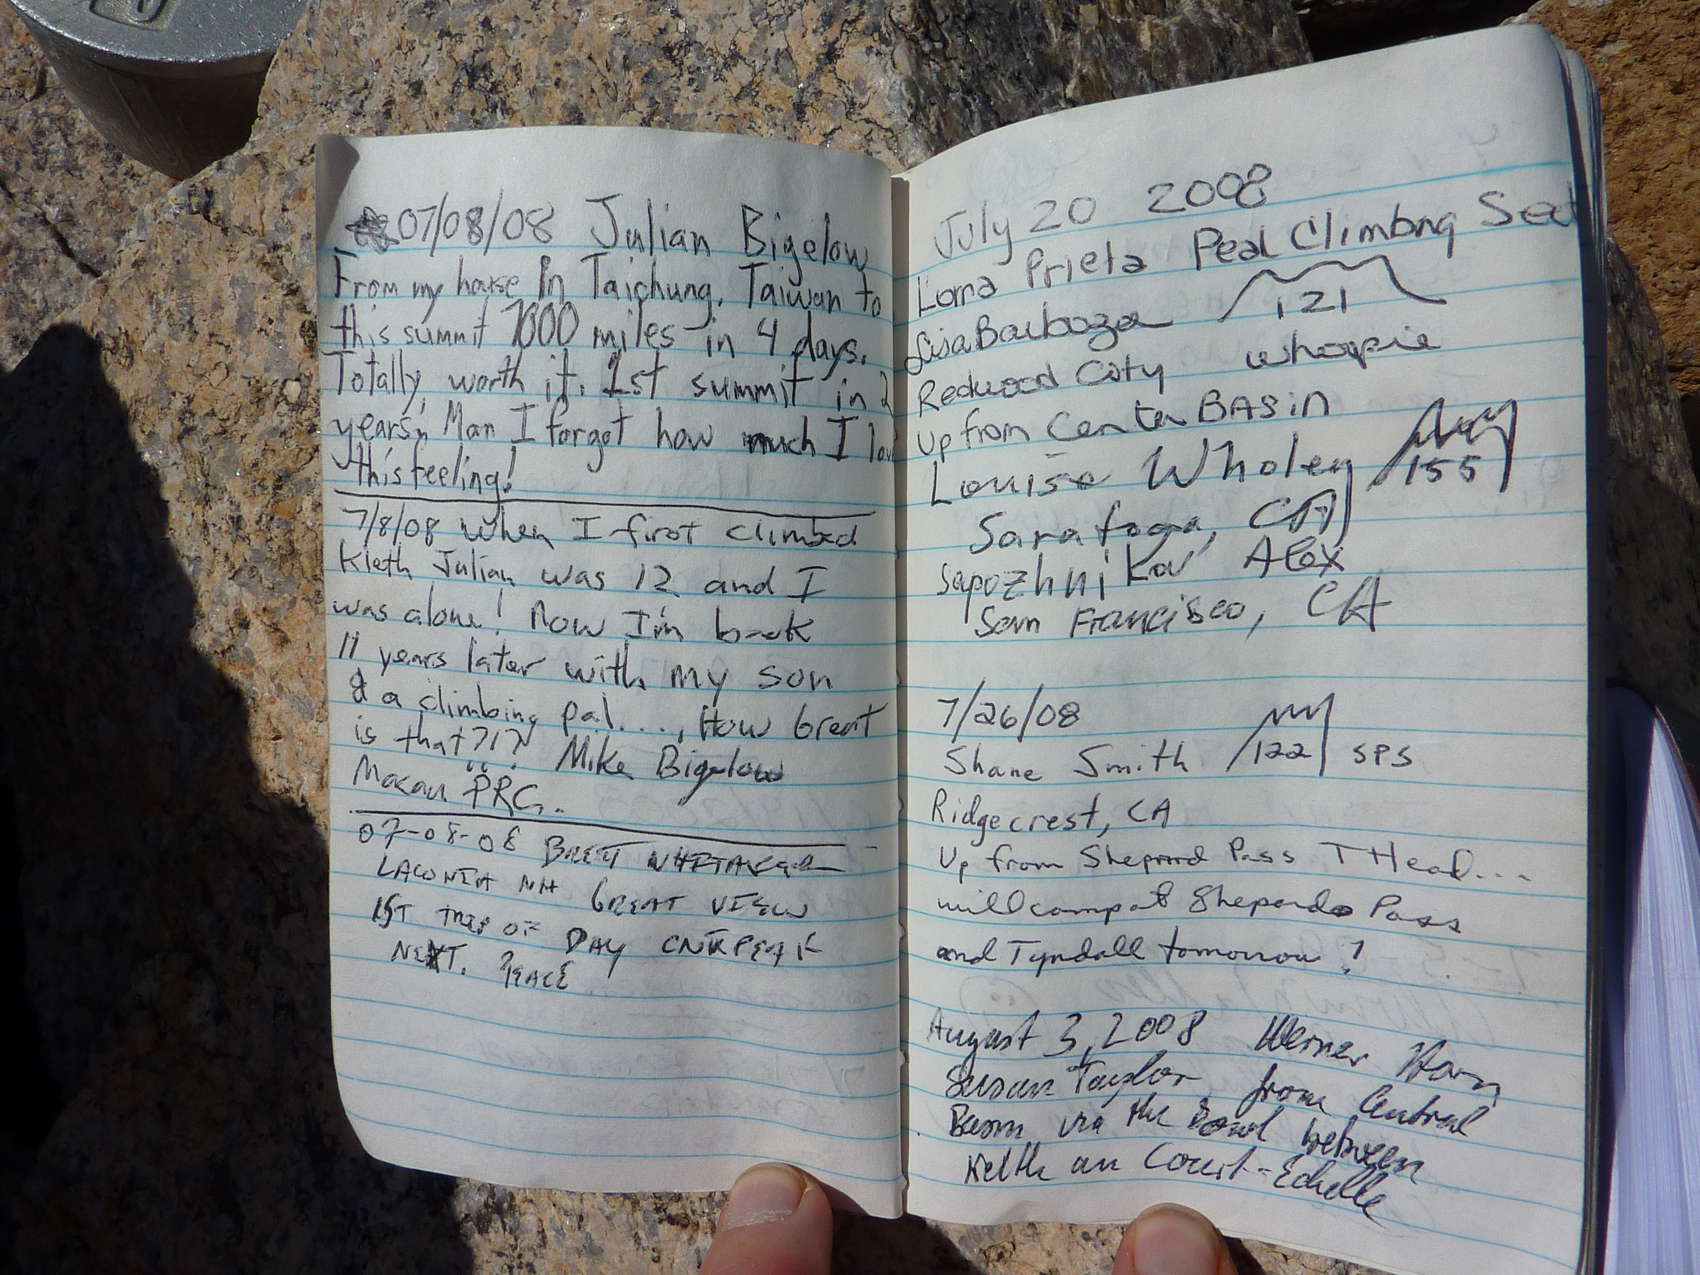 07/08/08 Julian Bigelow
From my house in Taichung, Taiwan to
this summit 7000 miles in 4 days.
Totally worth it. 1st summit in 2
years, Man I forgot how much I lov
this feeling!
7/8/08 When I first climbed
Kieth Julian was 12 and I
was alone! Now I'm back
11 years later with my son
& a climbing pal...., How Great
is that?!? Mike Bigelow
Macau PRC.
07-08-08 BRETT WHITAKER
LACONIA NH GREAT VIEW
1ST TRIP OF DAY CNR PEAK
NEXT. PEACE
July 20 2008
Loma Prieta Peak Climbing Sect
Lisa Barboza 121
Redwood City whoopie
up from Center BASIN
Louise Wholey 155
Saratoga, CA
Sapozhnikov Alex
San Francisco, CA
7/26/08
Shane Smith 122 SPS
Ridgecrest, CA
Up from Sheprd Pass THead....
will camp at Shepards Pass
and Tyndall tomorrow!
August 3, 2008 Werner Horn
Susan Taylor from Central
Basin via the bowl between
Keith an Court-Echelle